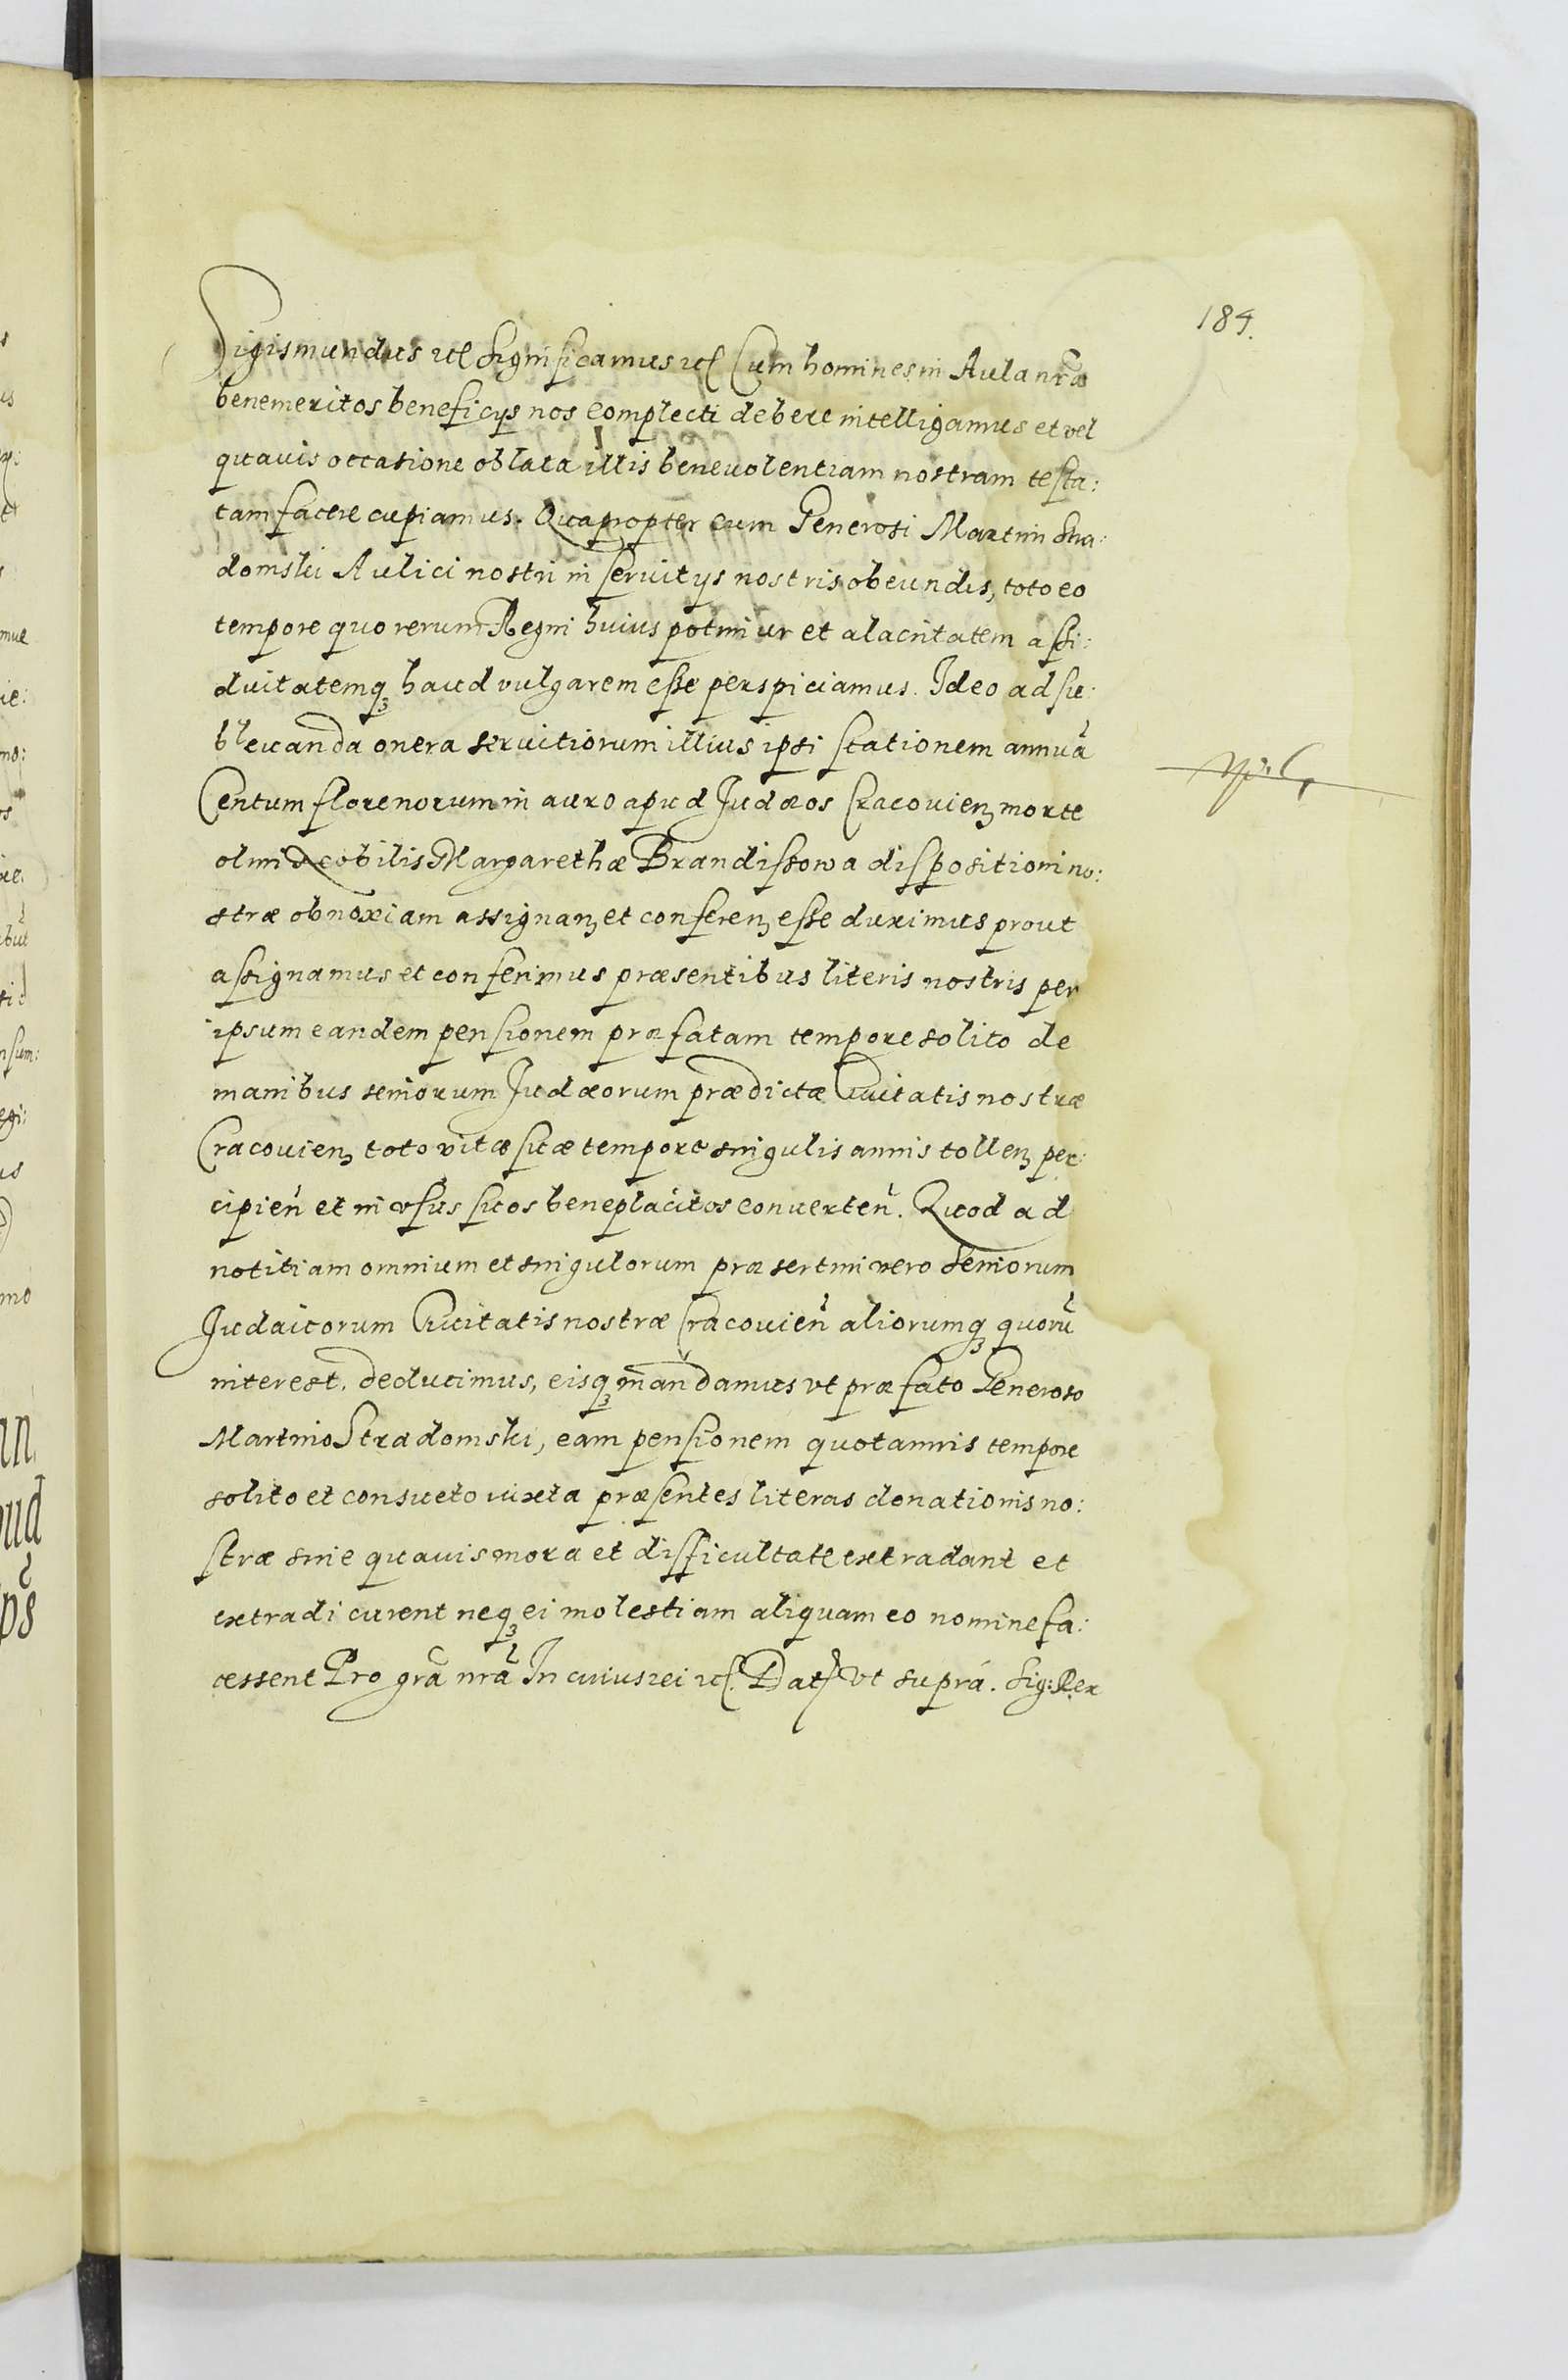 184.
Sigismundus etc Significamus etc Cum homines in Aula nra
benemeritos beneficys nos complecti debere intelligamus et vel
quauis occasione oblata illis beneuolentiam nostram testa:
tam facere cupiamus. Quapropter cum Generosi Martini Stra:
domski Aulici nostri in seruitys nostris obeundis, toto eo
tempore quo rerum Regni huius potimur et alacritatem assi:
duitatemq3 haud vulgarem esse perspiciamus. Ideo ad su:
bleuanda onera seruitiorum illius ipsi stationem annuã
Centum florenorum in auro apud Judæos Cracouien3 morte
olim Nobilis Margarethæ Brandissowa dispositioni no:
stræ obnoxiam assignan3 et conferen3 esse duximus prout
assignamus et conferimus præsentibus literis nostris per
ipsum eandem pensionem præfatam tempore solito de
manibus seniorum Judæorum prædictæ Ciuitatis nostræ
Cracouien3 toto vitæ suæ tempore singulis annis tollen3 per:
cipień et in vsus suos beneplacitos conuerteń. Quod ad
notitiam omnium et singulorum præsertim vero Seniorum
Judaicorum Ciuitatis nostræ Cracouień aliorumq3 quorũ
interest. deducimus, eisq3 mandamus vt præfato Generoso
Martino Stradomski, eam pensionem quotannis tempore
solito et consueto iuxta præsentes literas donationis no:
stræ sine quauis mora et difficultate extradant et
extradi curent neq3 ei molestiam aliquam eo nomine fa:
cessent Pro grã nrã In cuius rei etc. Dat vt suprá. Sig: Rex